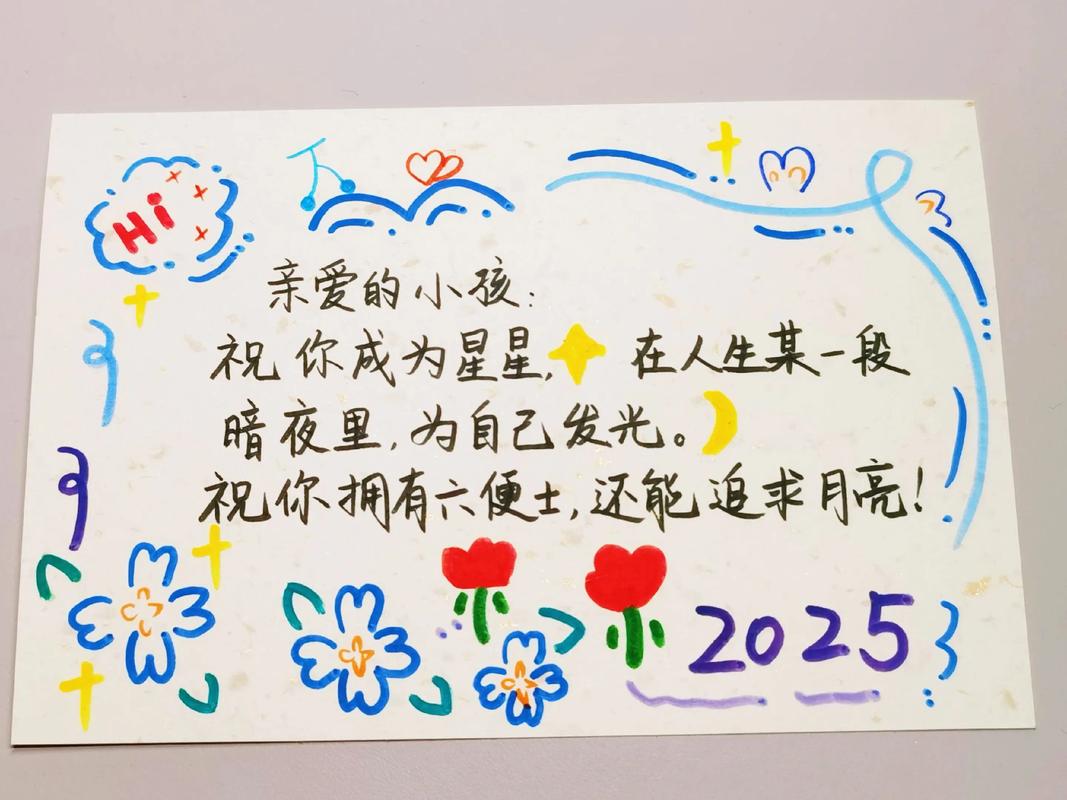 Hi
亲爱的小孩:
祝你成为星星,在人生某一段
暗夜里,为自己发光。
祝你拥有六便士,还能追求月亮!
2025